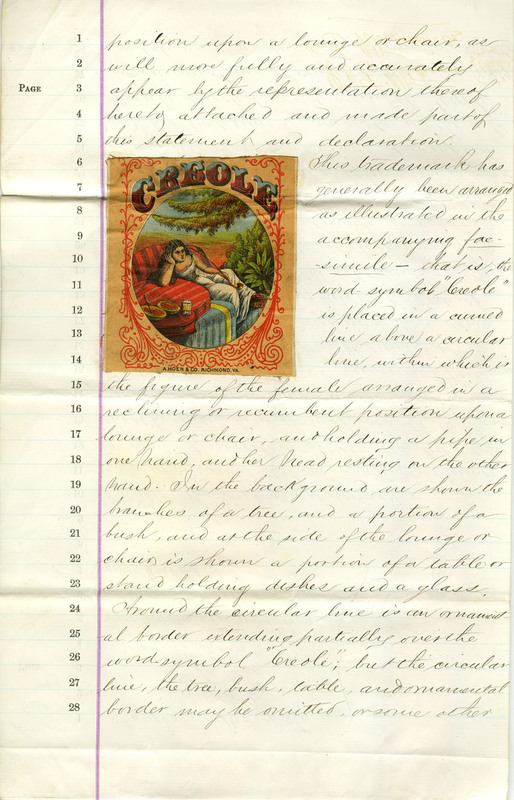 1 position upon a lounge or chair, as
2 will more fully and accurately
PAGE 3 appear by the representation thereof
4 hereto attached and made part of
5 this statement and declaration.
6 This trademark has
7 generally been arranged
8 as illustrated in the
9 accompanying fac-
10 -simile – that is, the
11 word symbol "Creole"
12 is placed in a curved
13 line above a circular
14 line, within which is
CREOLE
A. HOEN & CO. RICHMOND, VA.
15 the figure of the female arranged in a
16 reclining or recumbent position upon a
17 lounge or chair, and holding a pipe in
18 one hand, and her head resting on the other
19 hand. In the background are shown the
20 branches of a tree, and a portion of a
21 bush, and at the side of the lounge or
22 chair is shown a portion of a table or
23 stand holding dishes and a glass.
24 Around the circular line is an ornament-
25 al border extending partially over the
26 word symbol "Creole"; but the circular
27 line, the tree, bush, table, and ornamental
28 border may be omitted, or some other